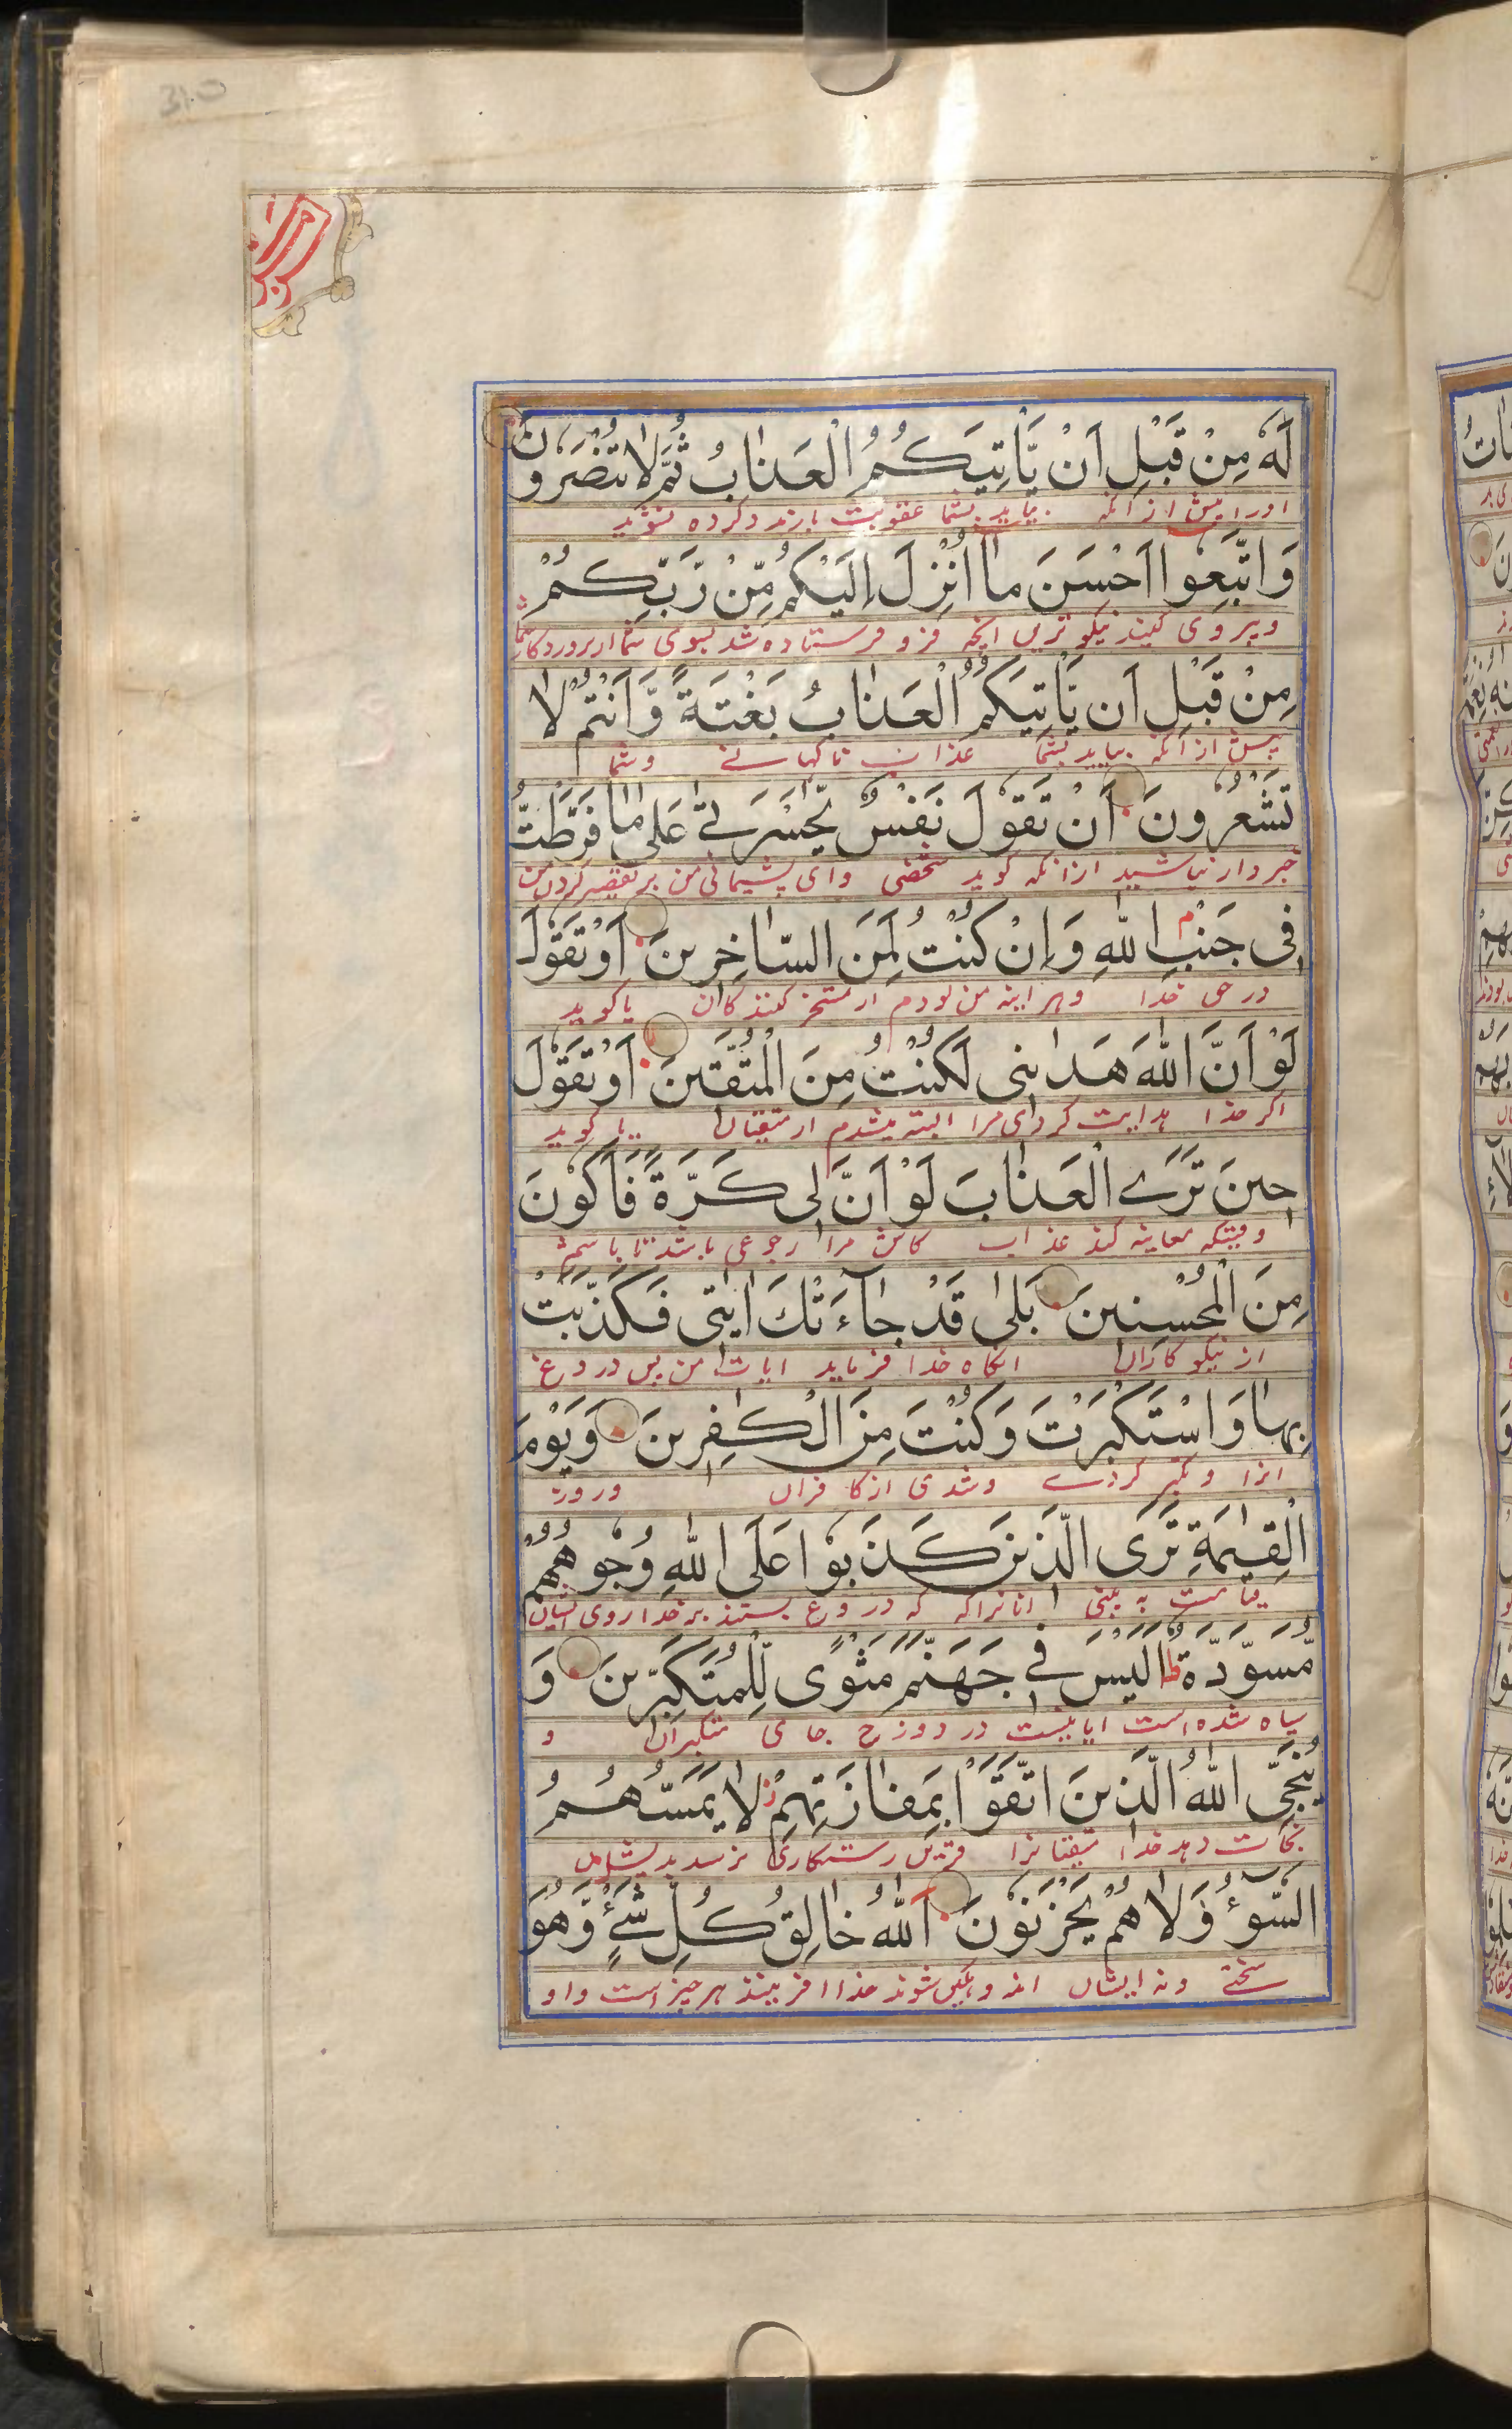 310
لَهٗ مِنْ قَبْلِ اَنْ يَّاْتِيَكُمُ الْعَذَابُ ثُمَّ لَا تُنْصَرُوْنَ
اورا پیش از آنکه بیاید بشما عقوبت باز مدد کرده نشوید
وَاتَّبِعُوْا اَحْسَنَ مَا اُنْزِلَ اِلَيْكُمْ مِّنْ رَّبِّكُمْ
و پیروی کنید نیکوترین آنچه فرو فرستاده شد بسوی شما از پروردگار شما
مِنْ قَبْلِ اَن يَّاْتِيَكُمُ الْعَذَابُ بَغْتَةً وَّاَنْتُمْ لَا
پیش از آنکه بیاید بشما عذاب ناگهانے و شما
تَشْعُرُوْنَ اَنْ تَقُوْلَ نَفْسٌ يّٰحَسْرَتٰى عَلٰى مَا فَرَّطْتُّ
خبردار نباشید از آنکه گوید شخصی وای پشیمانی من بر تقصیر کردن من
فِى جَنْبِ اللّٰهِ وَاِنْ كُنْتُ لَمِنَ السَّاخِرِيْنَ اَوْ تَقُوْلَ
در حق خدا و هر آینه من بودم از تمسخر کنندگان یا گوید
لَوْ اَنَّ اللّٰهَ هَدَانِى لَكُنْتُ مِنَ الْمُتَّقِيْنَ اَوْ تَقُوْلَ
اگر خدا هدایت کردی مرا البته میشدم از متقیان یا گوید
حِيْنَ تَرَى الْعَذَابَ لَوْ اَنَّ لِى كَرَّةً فَاَكُوْنَ
وقتیکه معاینه کند عذاب کاش مرا رجوعی باشد تا باشم
مِنَ الْمُحْسِنِيْنَ بَلٰى قَدْ جَآءَتْكَ اٰيٰتِى فَكَذَّبْتَ
از نیکوکاران آنگاه خدا فرماید آیات من پس دروغ
بِهَا وَاسْتَكْبَرْتَ وَكُنْتَ مِنَ الْكٰفِرِيْنَ وَيَوْمَ
آنرا و تکبر کردے و شدی از کافران و روز
الْقِيٰمَةِ تَرَى الَّذِيْنَ كَذَبُوْا عَلَى اللّٰهِ وُجُوْهُهُمْ
قیامت به بینی آنانرا که دروغ بستند بر خدا روی ایشان
مُّسْوَدَّةٌ ط اَلَيْسَ فِى جَهَنَّمَ مَثْوًى لِّلْمُتَكَبِّرِيْنَ وَ
سیاه شده است آیا نیست در دوزخ جای متکبران و
يُنَجِّى اللّٰهُ الَّذِيْنَ اتَّقَوْا بِمَفَازَتِهِمْ ز لَا يَمَسُّهُمُ
نجات دهد خدا متقیانرا قرین رستگاری نرسد بدیشان
السُّوْٓءُ وَلَا هُمْ يَحْزَنُوْنَ اَللّٰهُ خَالِقُ كُلِّ شَىْءٍ وَّهُوَ
سختے و نه ایشان اندوهگین شوند خدا آفریننده هر چیز است و او